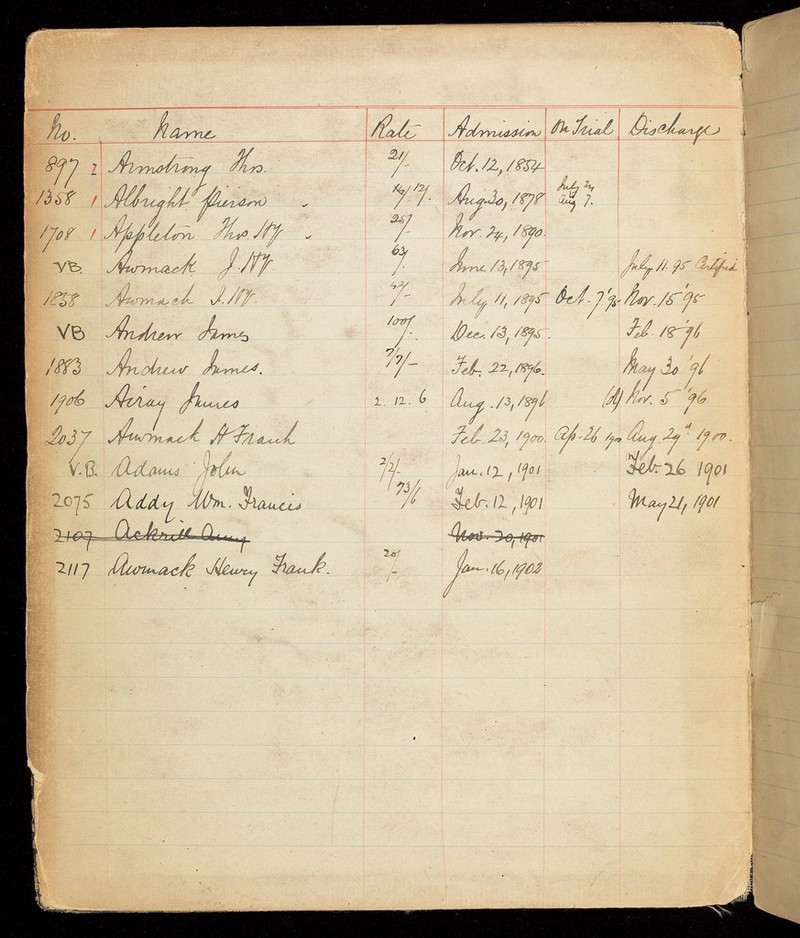 No. Name Rate Admission On Trial Discharge
897 2 Armstrong Thos. 21/- Oct. 12, 1854
1358 1 Albright Pierson 12/. Aug. 30, 1878 July 24 Aug 7.
1708 1 Appleton Thos. Hy 25/- Nov. 24, 1890.
VB. Awmack J. Hy 63/. June 13, 1895 July 11. 95 Certified
1858 Awmack J. Hy. 42/- July 11, 1895 Oct. 7 '95 Nov. 15 '95
VB Andrew James 100/. Dec. 13, 1895. Feb. 18 '96
1883 Andrew James. 7/7/- Feb. 22, 1896. May 30 '96
1906 Airay James 2. 12. 6 Aug. 13, 1896 (d) Nov. 5 '96
2037 Awmack H Frank Feb. 23, 1900. Ap. 26 1900 Aug 29th 1900.
V.B. Adams John 2/2/- Jan. 12, 1901 Feb. 26 1901
2075 Addy Wm. Francis 73/6 Feb. 12, 1901 May 21, 1901
2107 Ackrill Amy Nov. 20, 1901
2117 Awmack Henry Frank. 20/- Jan. 16, 1902